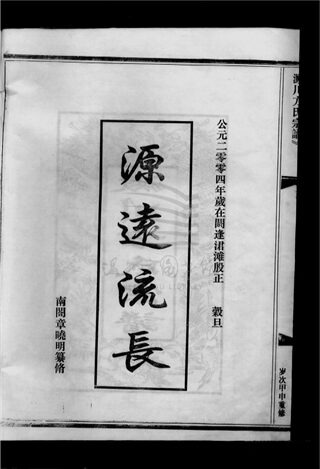 公元二零零四年歲在閼逢涒滩殷正 穀旦
源遠流長
南閣章曉明纂脩
岁次甲申重修